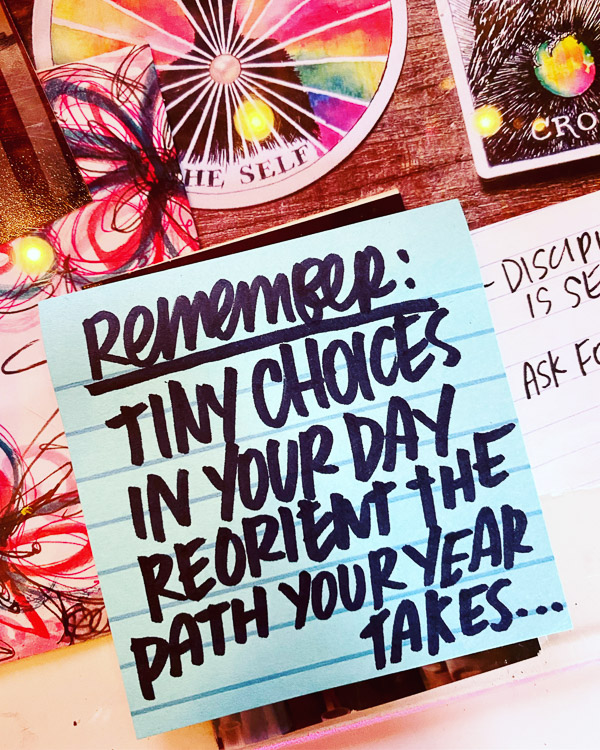 THE SELF
CRO
REMEMBER:
TINY CHOICES
IN YOUR DAY
REORIENT THE
PATH YOUR YEAR
TAKES...
- DISCIPL
IS SE
ASK FO